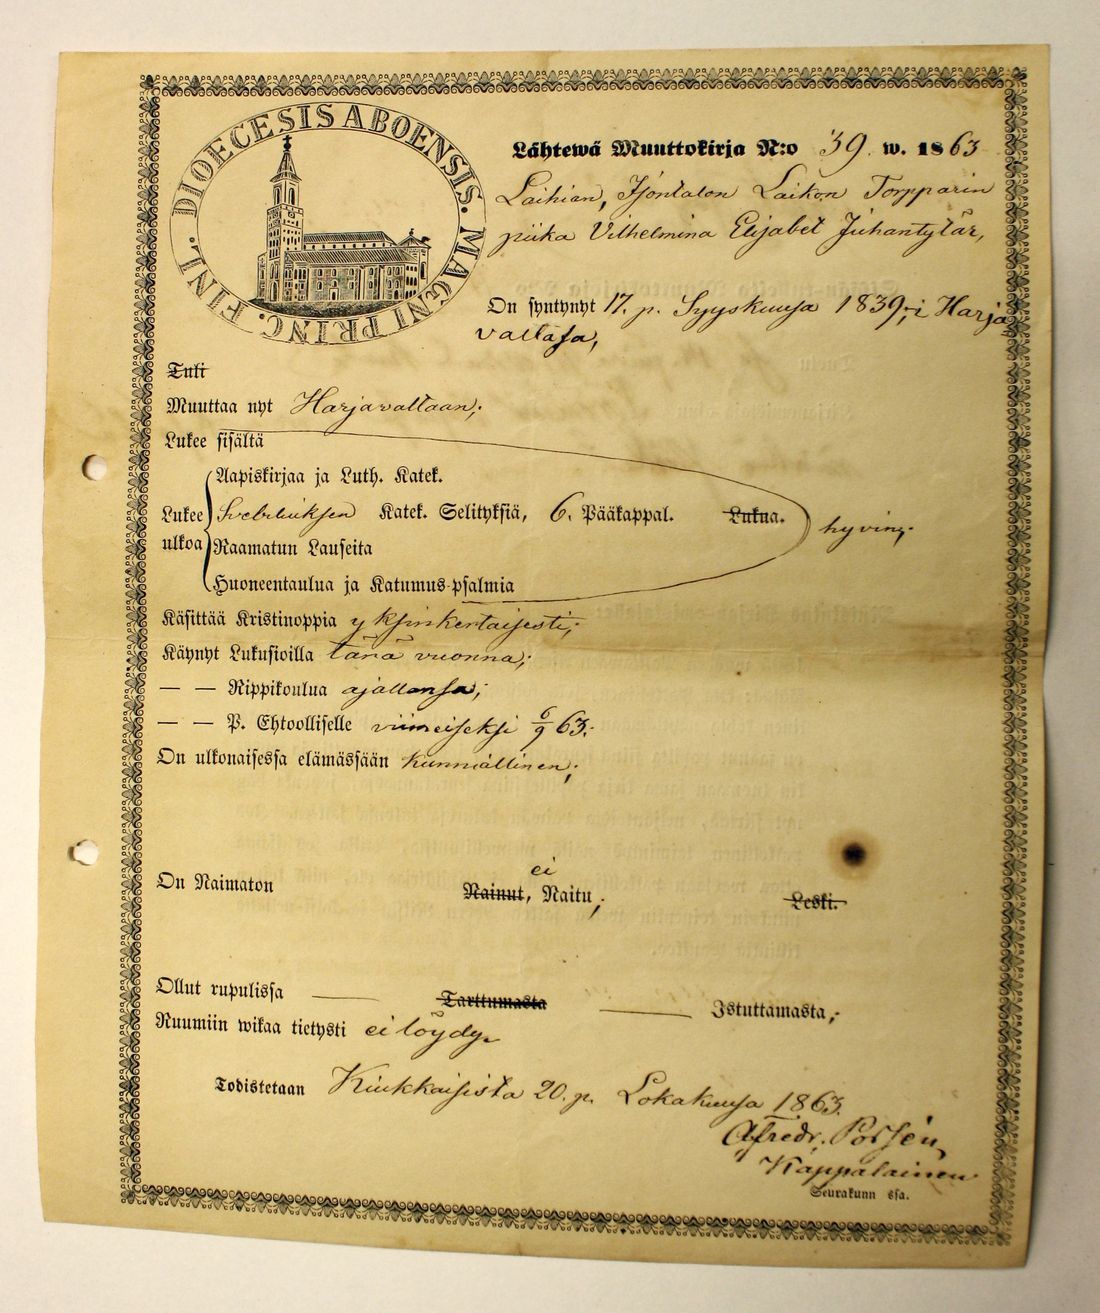 DIOECESIS ABOENSIS. MAGNI PRINC. FINL.
Lähtewä Muuttokirja N:o 39. w. 1863
Laihian, Isöntalon Laikon Torpparin
piika Vilhelmina Elisabet Juhantytär,
On syntynyt 17. p. Syyskuusa 1839, i Harja
vallasa,
Tuli
Muuttaa nyt Harjavaltaan,
Lukee sisältä
Aapiskirjaa ja Luth. Katek.
Lukee ulkoa Svebiliuksen Katek. Selityksiä, 6. Pääkappal. Lukua. hyvin,
Raamatun Lauseita
Huoneentaulua ja Katumus-psalmia
Käsittää Kristinoppia yksinkertaisesti,
Käynyt Lukusioilla tänä vuonna,
— — Rippikoulua ajallansa,
— — P. Ehtoolliselle viimeiseksi 6/9 63.
On ulkonaisessa elämässään kunniallinen,
ei
On Naimaton Nainut, Naitu, Leski.
Ollut rupulissa — Tarttumasta — Istuttamasta,
Ruumiin wikaa tietysti ei löydy.
Todistetaan Kiukkaisista 20. p. Lokakuusa 1863.
Fredr. Polsén
Kappalainen
Seurakunn ssa.